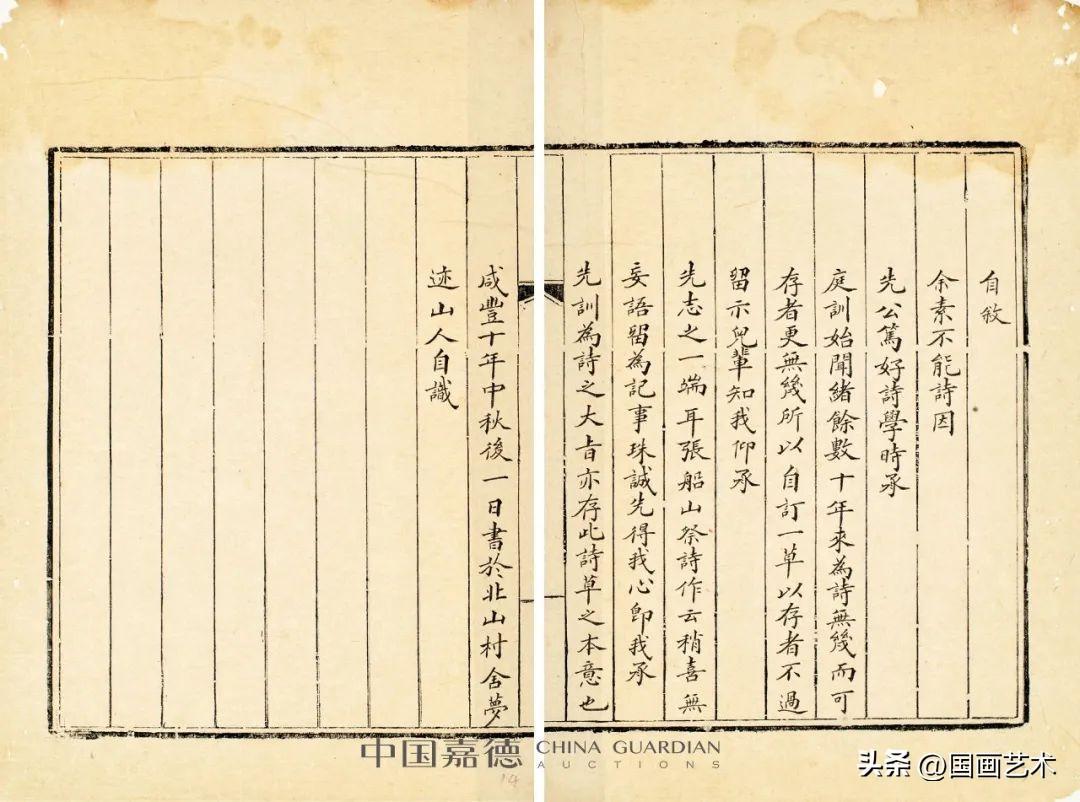 自敘
余素不能詩因
先公篤好詩學時承
庭訓始聞緒餘數十年來為詩無幾而可
存者更無幾所以自訂一草以存者不過
留示兒輩知我仰承
先志之一端耳張船山祭詩作云稍喜無
妄語留為記事珠誠先得我心即我承
先訓為詩之大旨亦存此詩草之本意也
咸豐十年中秋後一日書於北山村舍夢
迹山人自識
中国嘉德 CHINA GUARDIAN
AUCTIONS
头条 @国画艺术
14